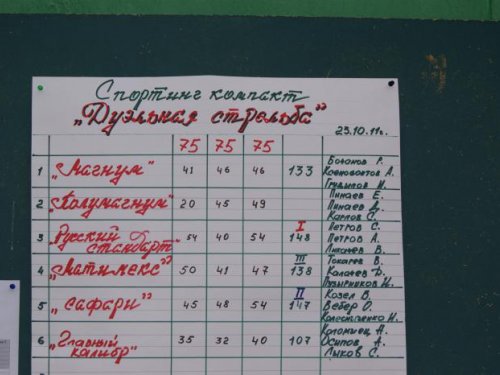 Спортинг компакт
„Дуэльная стрельба”
23.10.11г.
75 75 75
1 „Магнум” 41 46 46 133 Ксеновонтов А.
2 „Полумагнум” 20 45 49 Пинаев Е. Пинаев Д. Карпов С.
3 „Русский стандарт” 54 40 54 I 148 Петров С. Петров А. В.
4 „Матимекс” 50 41 47 III 138 Токарев В. Д. Пузырников И.
5 „Сафари” 45 48 54 II 147 Козел В. Вебер О. Колесниченко И.
6 „Главный калибр” 35 32 40 107 Коломиец А. Осипов А. Лыков С.